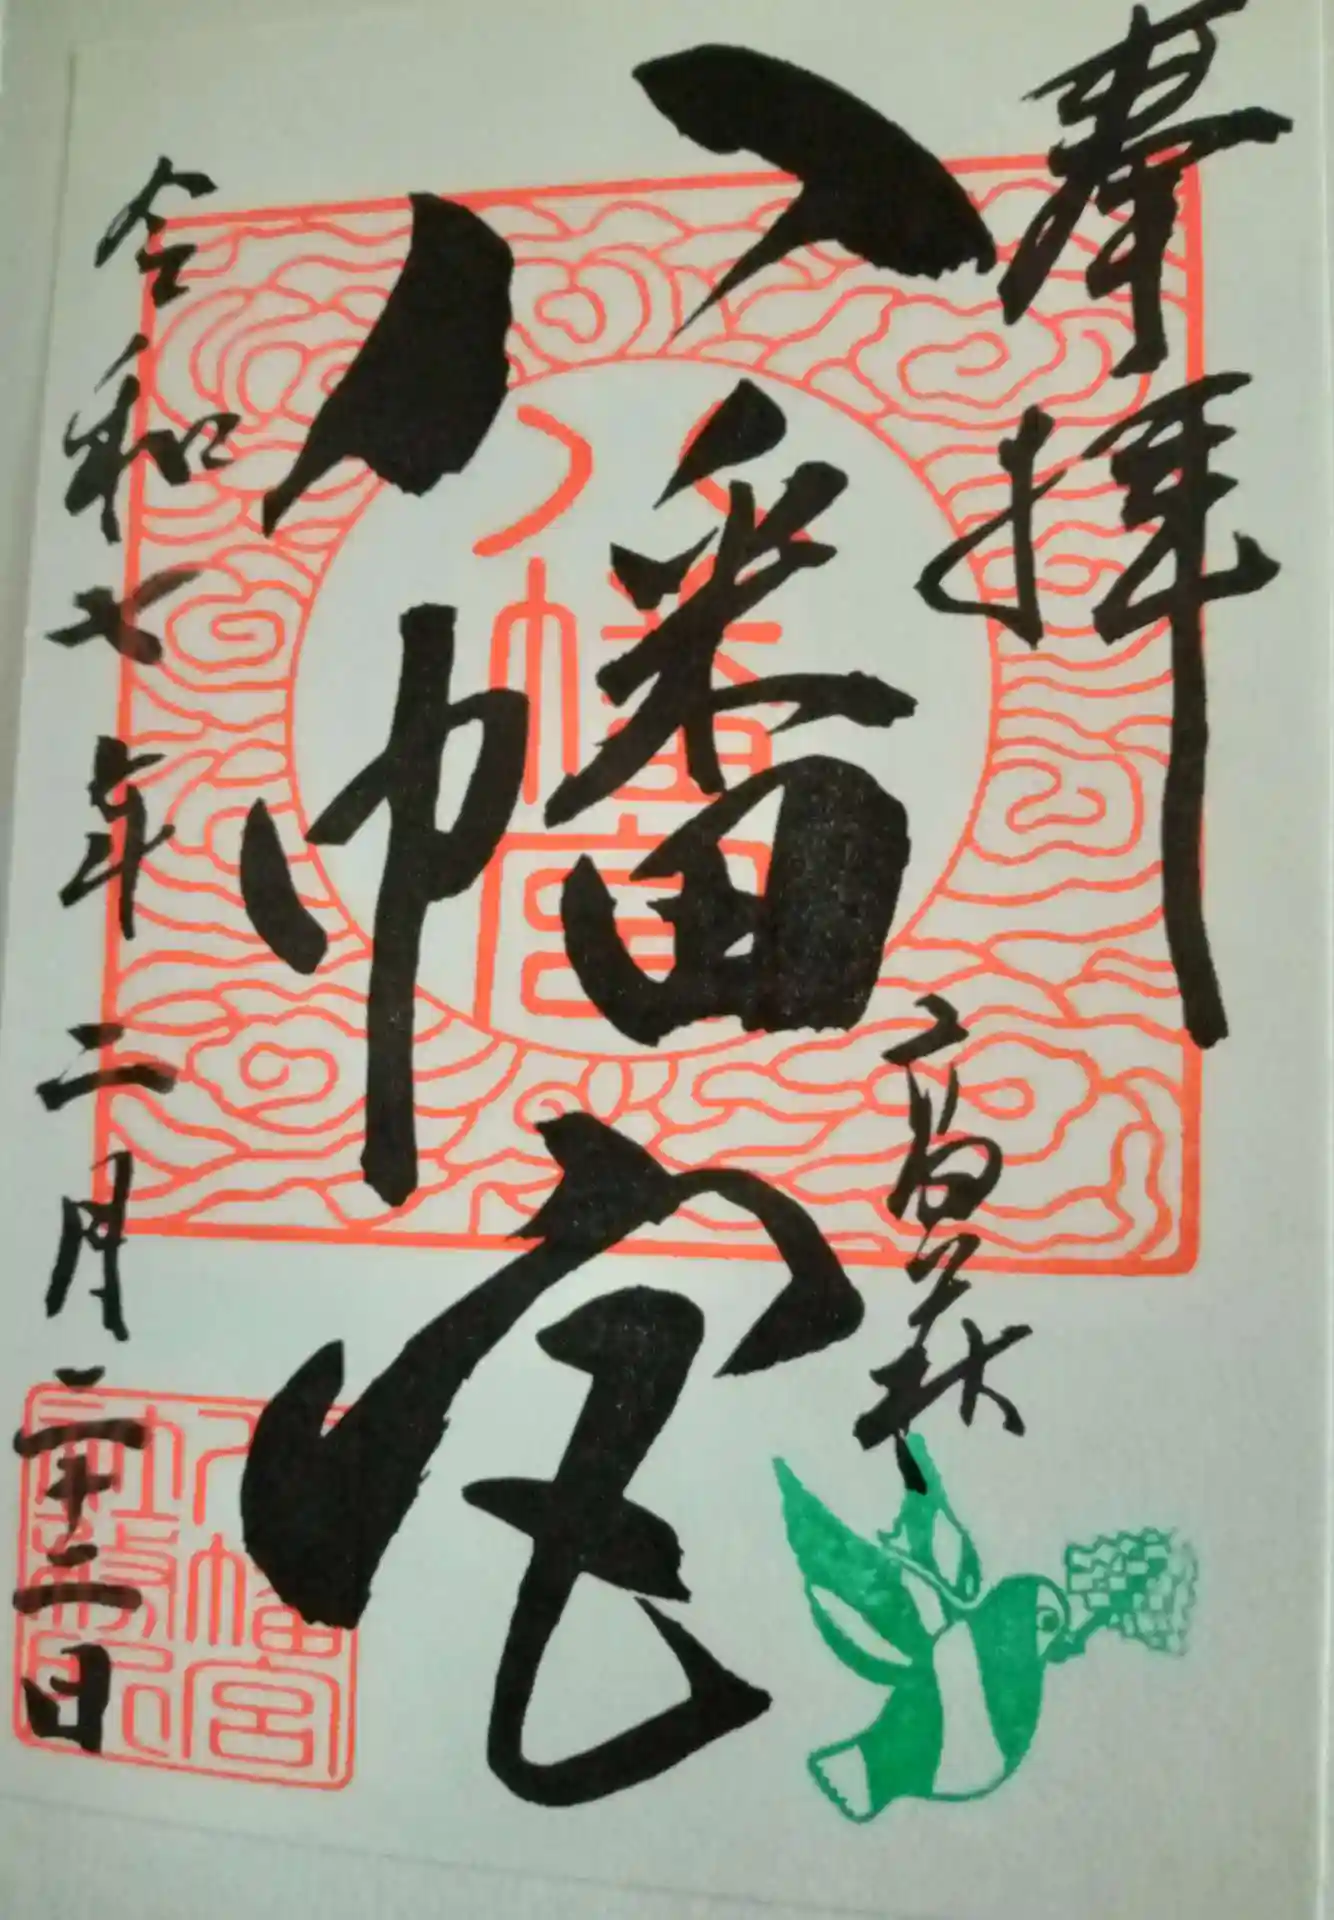 奉拝
高萩
八幡宮
八幡宮
令和七年二月二十二日
八幡宮
社務所